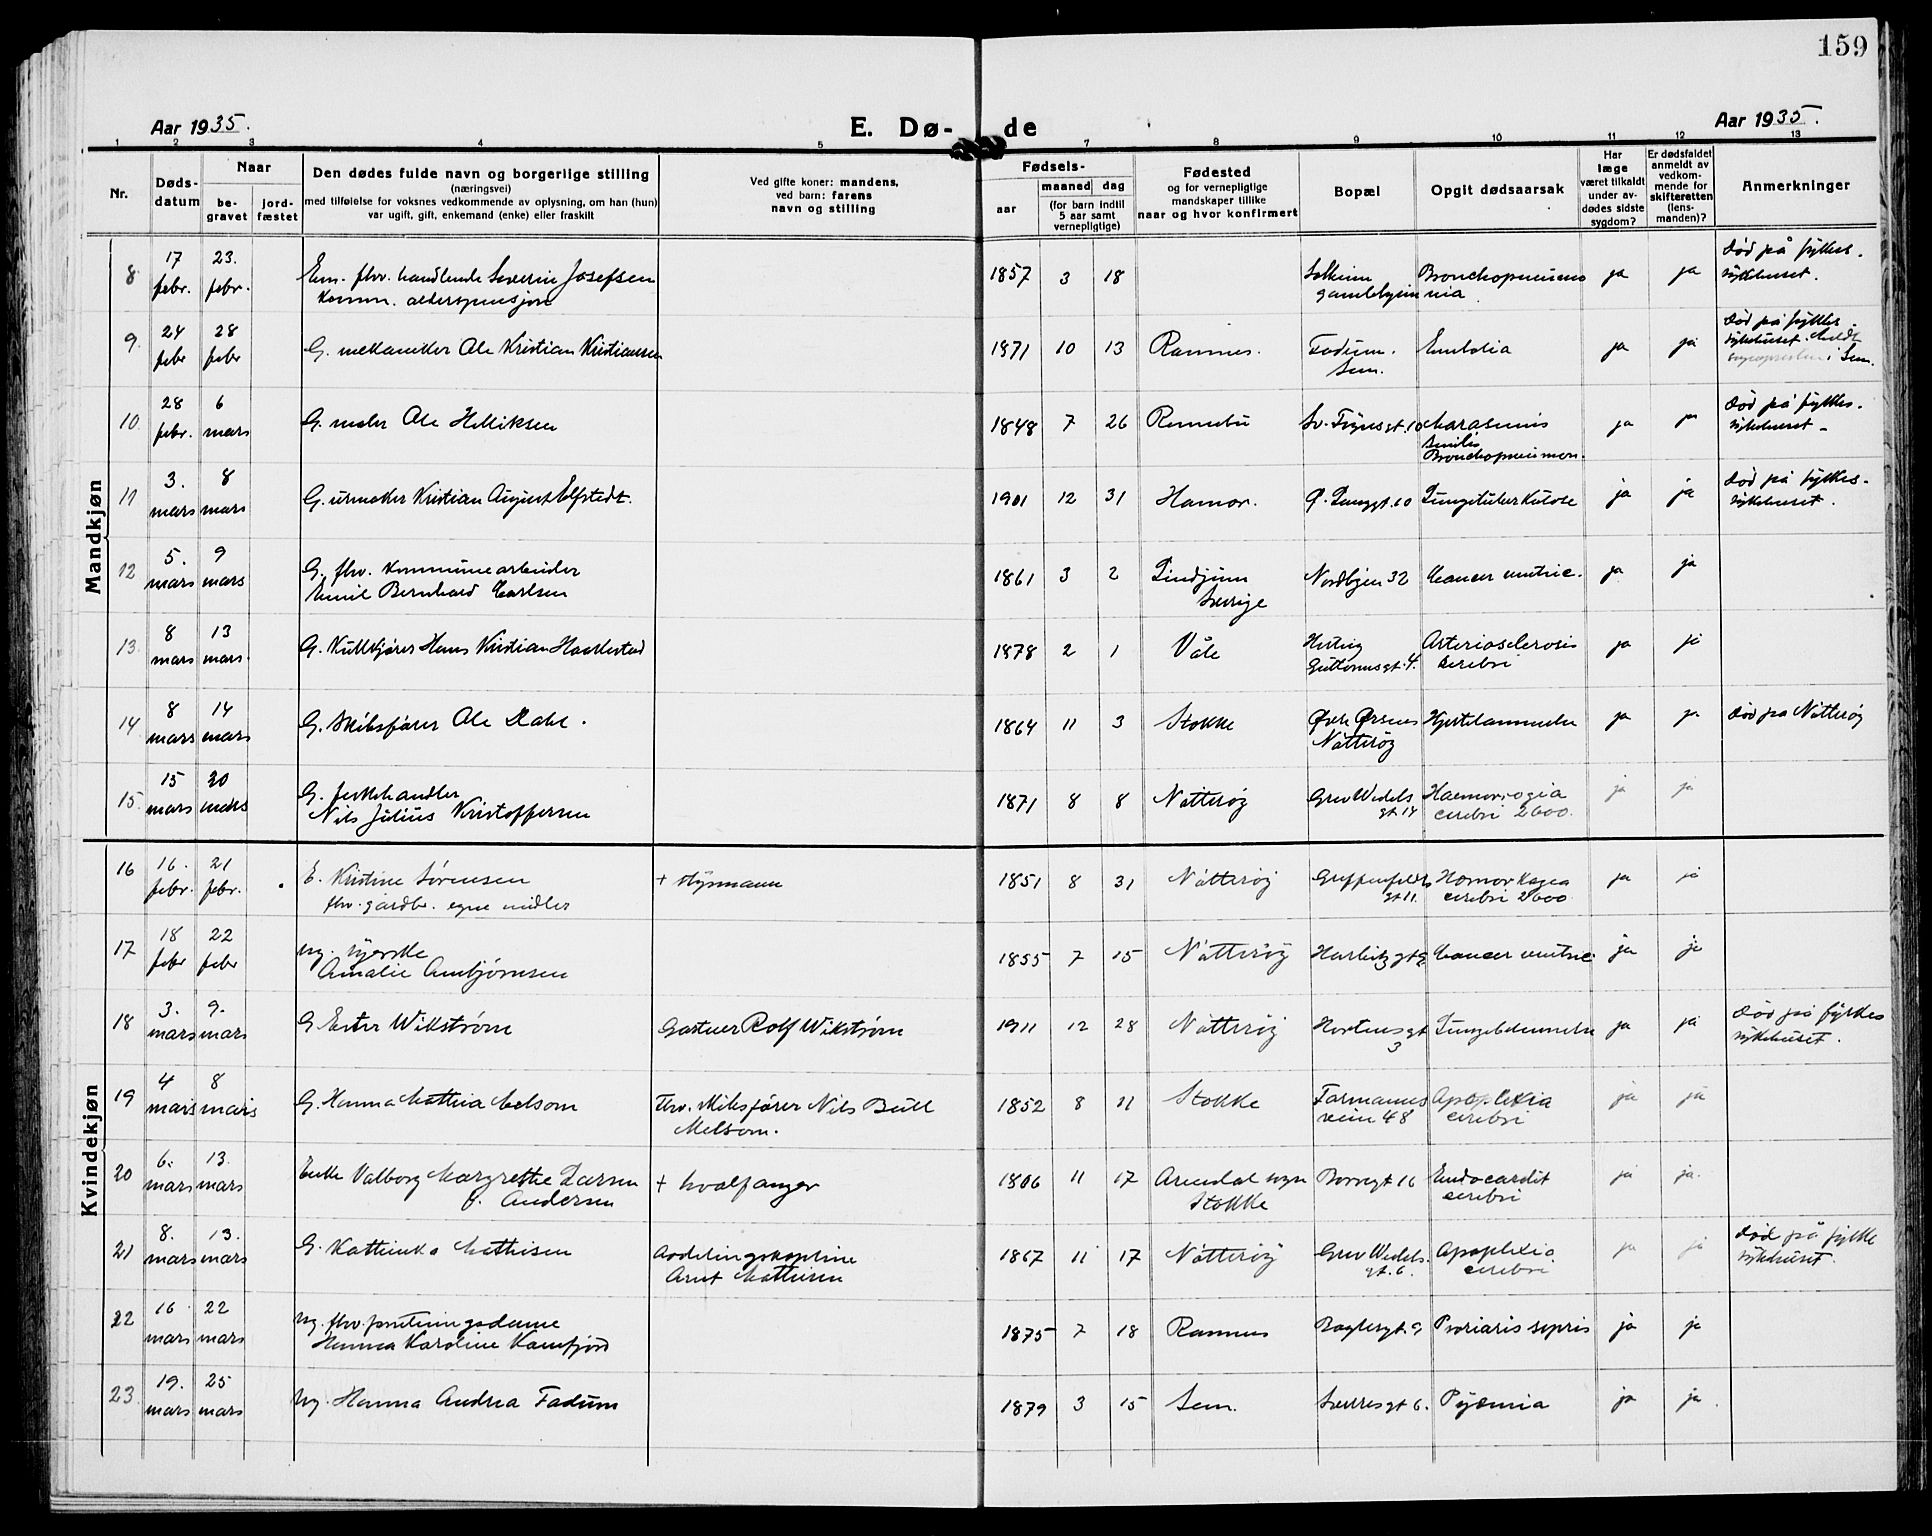 159
Aar 1935.
E. Dø-
de
Aar 1935.
1 2 3 4 5 7 8 9 10 11 12 13
Nr.
Døds-
datum
Naar
be-
gravet
jord-
fæstet
Den dødes fulde navn og borgerlige stilling
(næringsvei)
med tilføielse for voksnes vedkommende av oplysning, om han (hun)
var ugift, gift, enkemand (enke) eller fraskilt
Ved gifte koner: mandens,
ved barn: farens
navn og stilling
Fødsels-
aar
maaned
dag
(for barn indtil
5 aar samt
vernepligtige)
Fødested
og for vernepligtige
mandskaper tillike
naar og hvor konfirmert
Bopæl
Opgit dødsaarsak
Har
læge
været tilkaldt
under av-
dødes sidste
sygdom?
Er dødsfaldet
anmeldt av
vedkom-
mende for
skifteretten
(lens-
manden)?
Anmerkninger
Mandkjøn
8 17 febr. 23. febr. Em. fhv. handlende Severin Josefsen
komm. alderspensjon
1857 3 18 Solheim gamlebyen Bronchopneumonia. ja ja Død på fylkes-
sykehuset.
9. 24 febr 28 febr G. mekaniker Ole Kristian Kristiansen 1871 10 13 Ramnes. Fadum. Sem. Embolia ja ja Død på fylkes
sykehuset. Meldt
sognepresten i Sem.
10. 28 febr. 6 mars G. maler Ole Helliksen 1848 7 26 Rennebu Sv. Foynsgt. 10 Marasmus
senilis
Bronchopneumon. ja ja Død på fylkes-
sykehuset -
11 3. mars 8 mars G. urmaker Kristian August Elfstedt. 1901 12 31 Hamar. Ø. Langgt. 60 Lungetuberkulose ja ja Død på fylkes-
sykehuset.
12 5. mars 9 mars G. fhv. kommunearbeider
Emil Bernhard Carlsen
1861 3 2 Sverige Nordbyen 32 Cancer ventric. ja ja
13. 8 mars 13 mars. G. Kullkjører Hans Kristian Haakestad 1878 2 1 Våle Hertug
Guttormsgt. 4. Arteriosclerosis
cerebri ja ja
14 8 mars 14 mars G. Skibsfører Ole Dahl. 1864 11 3 Stokke Øvre Ørsnes
Nøtterøy Hjertelammelse ja ja Død på Nøtterøy
15. 15 mars 20 mars G. fiskehandler
Nils Julius Kristoffersen
1871 8 8 Nøtterøy Grev Wedels
gt. 14 Haemorrogia
cerebri 2600. ja ja
Kvindekjøn
16 16. febr. 21 febr. E. Kristine Sørensen
fhv. gårdbr. egne midler
+ styrmann 1851 8 31 Nøtterøy Griffenfelds
gt 11. Hæmorhagea
cerebri 2600 ja ja
17 18 febr 22 febr Ug. syerske
Amalie Ambjørnsen
1855 7 15 Nøtterøy Harbitzgt Cancer ventric. ja ja
18 3. mars 9. mars G Ester Wikstrøm Gartner Rolf Wikstrøm 1911 12 28 Nøtterøy Hortensgt
3 Lungebetennelse ja ja Død på fylkes
sykehuset.
19 4 mars 8 mars G. Hanna Mathea Melsom Fhv. skibsfører Nils Bull
Melsom. 1852 8 11 Stokke Farmanns
veien 48 Apoplexia
cerebri ja ja
20 6. mars 13. mars Enke Valborg Margrethe Larsen
f. Andersen
+ hvalfanger 1866 11 17 Arendal sogn
Stokke Borregt 16 Endocardit
cerebri ja ja.
21 8. mars 13. mars G. Kathinka Mathisen Avdelingskaptein
Arnt Mathisen 1867 11 17 Nøtterøy Grev Wedels.
gt. 6. Apoplexia
cerebri ja ja Død på fylke
sykehuset.
22 16 mars 22 mars Ug. fhv. forretningsdame
Hanna Karoline Kamfjord
1875 7 18 Ramnes Baglergt. 9 Psoriasis sepsis ja ja
23. 19. mars 25 mars Ug. Hanna Andrea Fadum 1879 3 15 Sem. Sverresgt 6. Pyæmia ja ja